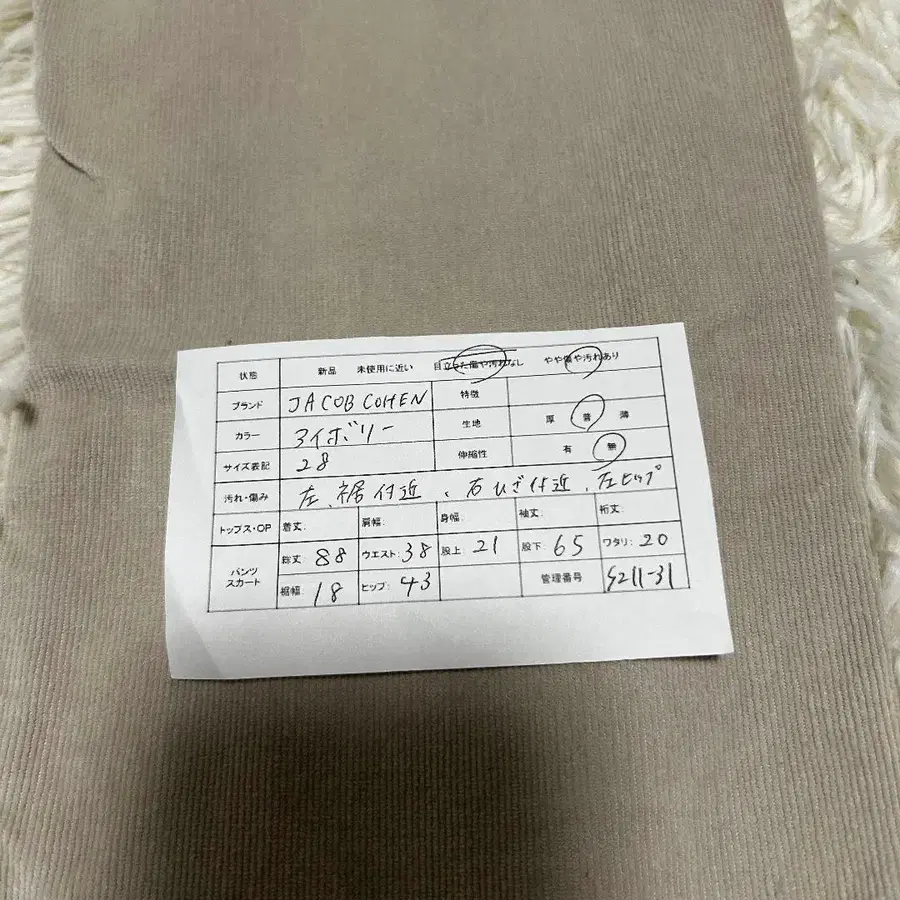 状態 新品 未使用に近い 目立った傷や汚れなし やや傷や汚れあり
ブランド JACOB COHEN 特徴
カラー アイボリー 生地 厚 普 薄
サイズ表記 28 伸縮性 有 無
汚れ・傷み 左、裾付近、右ひざ付近、左ヒップ
トップス・OP 着丈: 肩幅: 身幅: 袖丈: 裄丈:
パンツ スカート 総丈: 88 ウエスト: 38 股上: 21 股下: 65 ワタリ: 20
裾幅: 18 ヒップ: 43 管理番号 S211-31